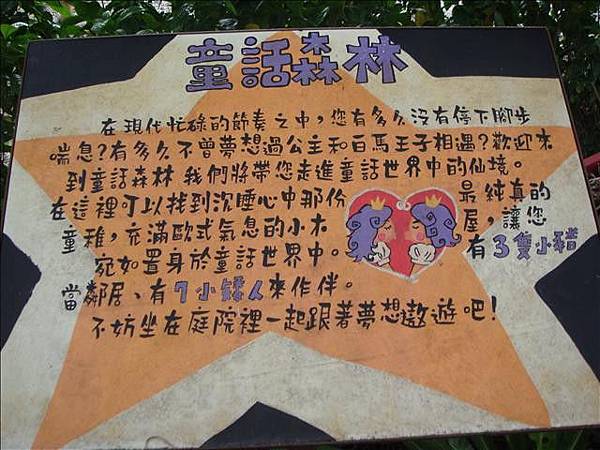 童話森林
在現代忙碌的節奏之中,您有多久沒有停下腳步
喘息?有多久不曾夢想過公主和白馬王子相遇?歡迎來
到童話森林 我們將帶您走進童話世界中的仙境。
在這裡可以找到沉睡心中那份 最純真的
童稚,充滿歐式氣息的小木 屋,讓您
宛如置身於童話世界中。 有3隻小豬
當鄰居、有7小矮人來作伴。
不妨坐在庭院裡一起跟著夢想遨遊吧!